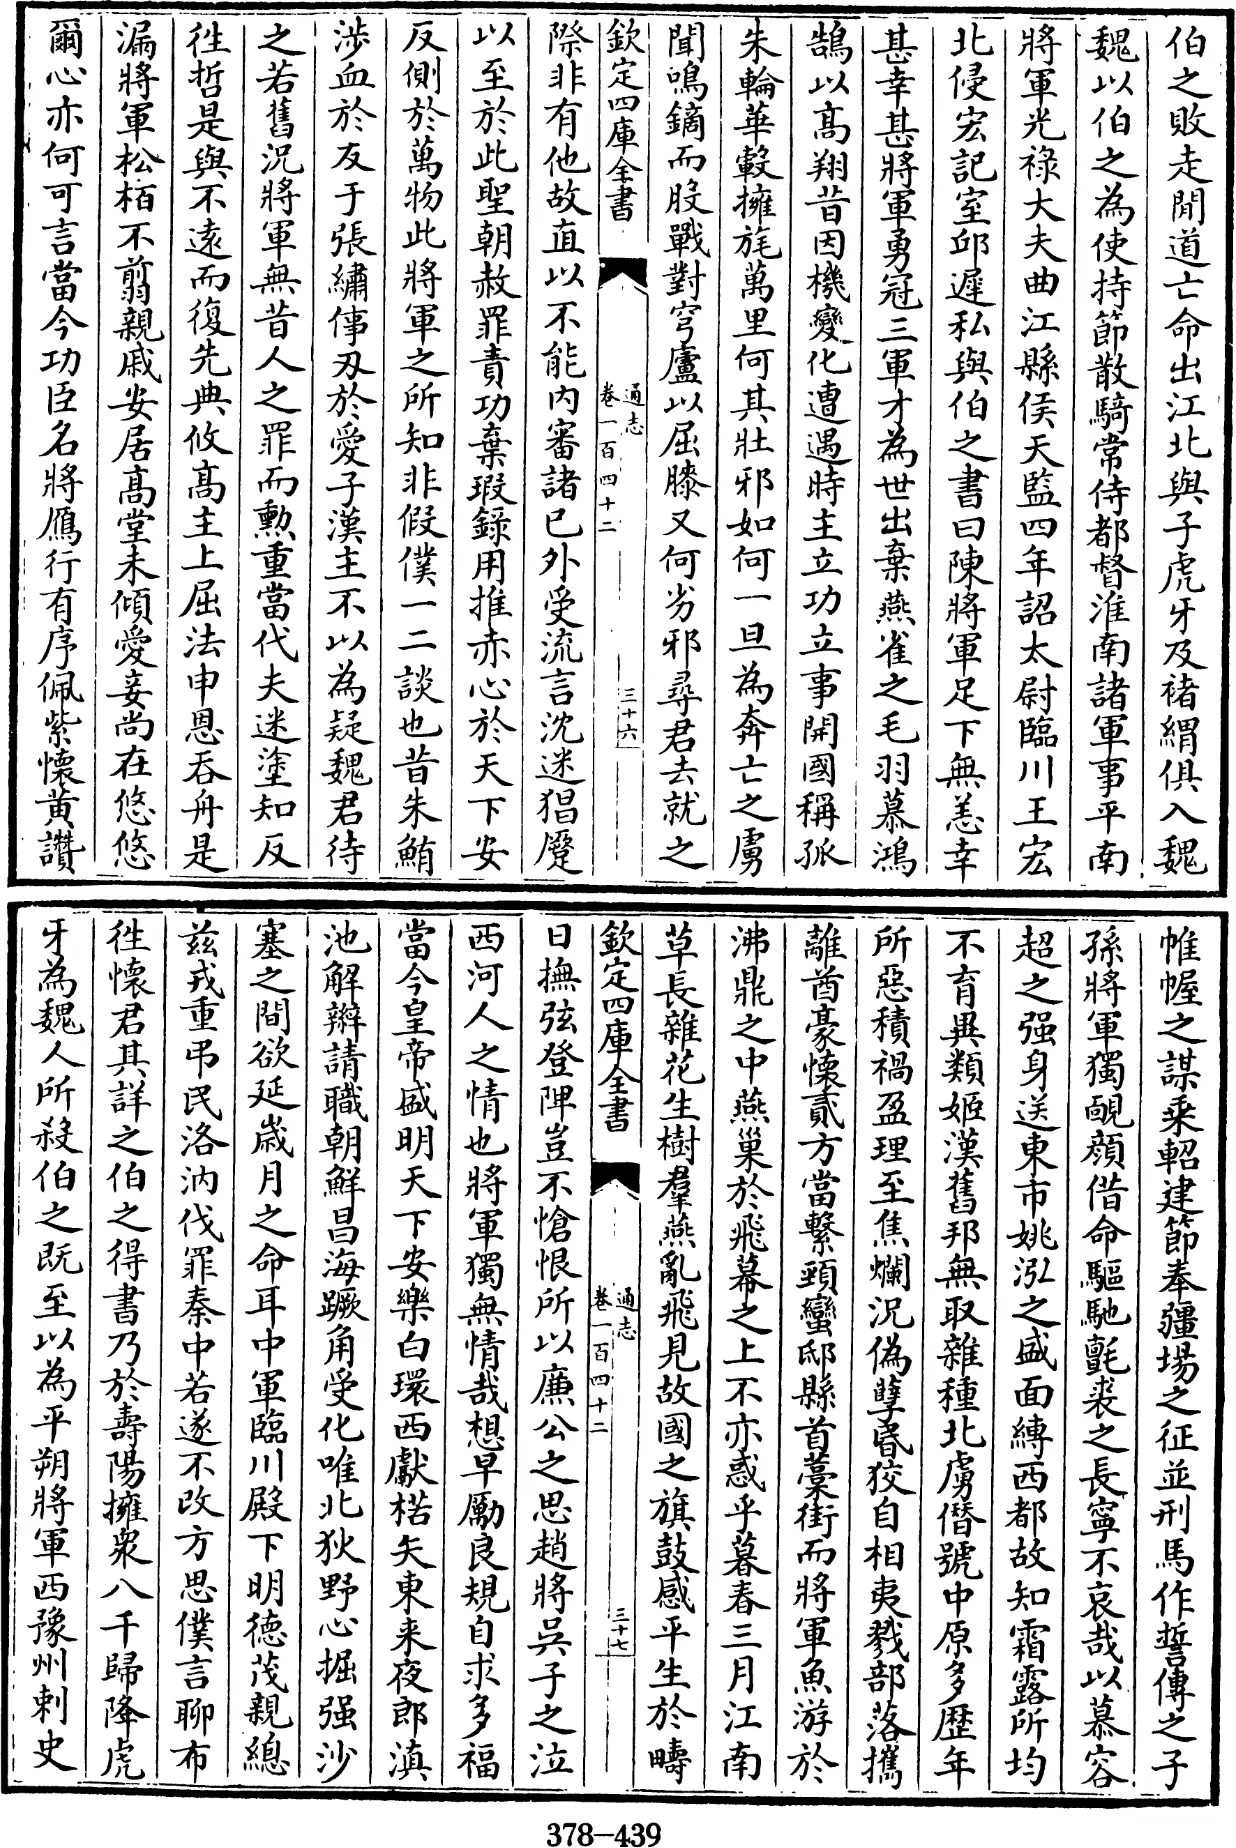 伯之敗走間道亡命出江北與子虎牙及褚緭俱入魏
魏以伯之為使持節散騎常侍都督淮南諸軍事平南
將軍光祿大夫曲江縣侯天監四年詔太尉臨川王宏
北侵宏記室邱遲私與伯之書曰陳將軍足下無恙幸
甚幸甚將軍勇冠三軍才為世出棄燕雀之毛羽慕鴻
鵠以高翔昔因機變化遭遇時主立功立事開國稱孤
朱輪華轂擁旄萬里何其壯邪如何一旦為奔亡之虜
聞鳴鏑而股戰對穹廬以屈膝又何劣邪尋君去就之
欽定四庫全書
通志
卷一百四十二
三十六
際非有他故直以不能內審諸已外受流言沈迷猖蹙
以至於此聖朝赦罪責功棄瑕錄用推赤心於天下安
反側於萬物此將軍之所知非假僕一二談也昔朱鮪
涉血於友于張繡倳刃於愛子漢主不以為疑魏君待
之若舊況將軍無昔人之罪而勲重當代夫迷塗知反
徃哲是與不逺而復先典攸高主上屈法申恩吞舟是
漏將軍松栢不翦親戚安居高堂未傾愛妾尚在悠悠
爾心亦何可言當今功臣名將鴈行有序佩紫懷黃讚
帷幄之謀乘軺建節奉疆場之征並刑馬作誓傳之子
孫將軍獨靦顔借命驅馳氊裘之長寧不哀哉以慕容
超之强身送東市姚泓之盛面縛西都故知霜露所均
不育異類姬漢舊邦無取雜種北虜僭號中原多歷年
所惡積禍盈理至焦爛況偽孽昬狡自相夷戮部落攜
離酋豪懷貳方當繫頸蠻邸縣首藁街而將軍魚游於
沸鼎之中燕巢於飛幕之上不亦惑乎暮春三月江南
草長雜花生樹羣燕亂飛見故國之旗鼓感平生於疇
欽定四庫全書
通志
卷一百四十二
三十七
日撫弦登陴豈不愴恨所以廉公之思趙將吳子之泣
西河人之情也將軍獨無情哉想早勵良規自求多福
當今皇帝盛明天下安樂白環西獻楛矢東来夜郎滇
池解辮請職朝鮮昌海蹶角受化唯北狄野心掘强沙
塞之間欲延歲月之命耳中軍臨川殿下明德茂親總
兹戎重弔民洛汭伐罪秦中若遂不改方思僕言聊布
徃懷君其詳之伯之得書乃於壽陽擁衆八千歸降虎
牙為魏人所殺伯之既至以為平朔將軍西豫州刺史
378-439